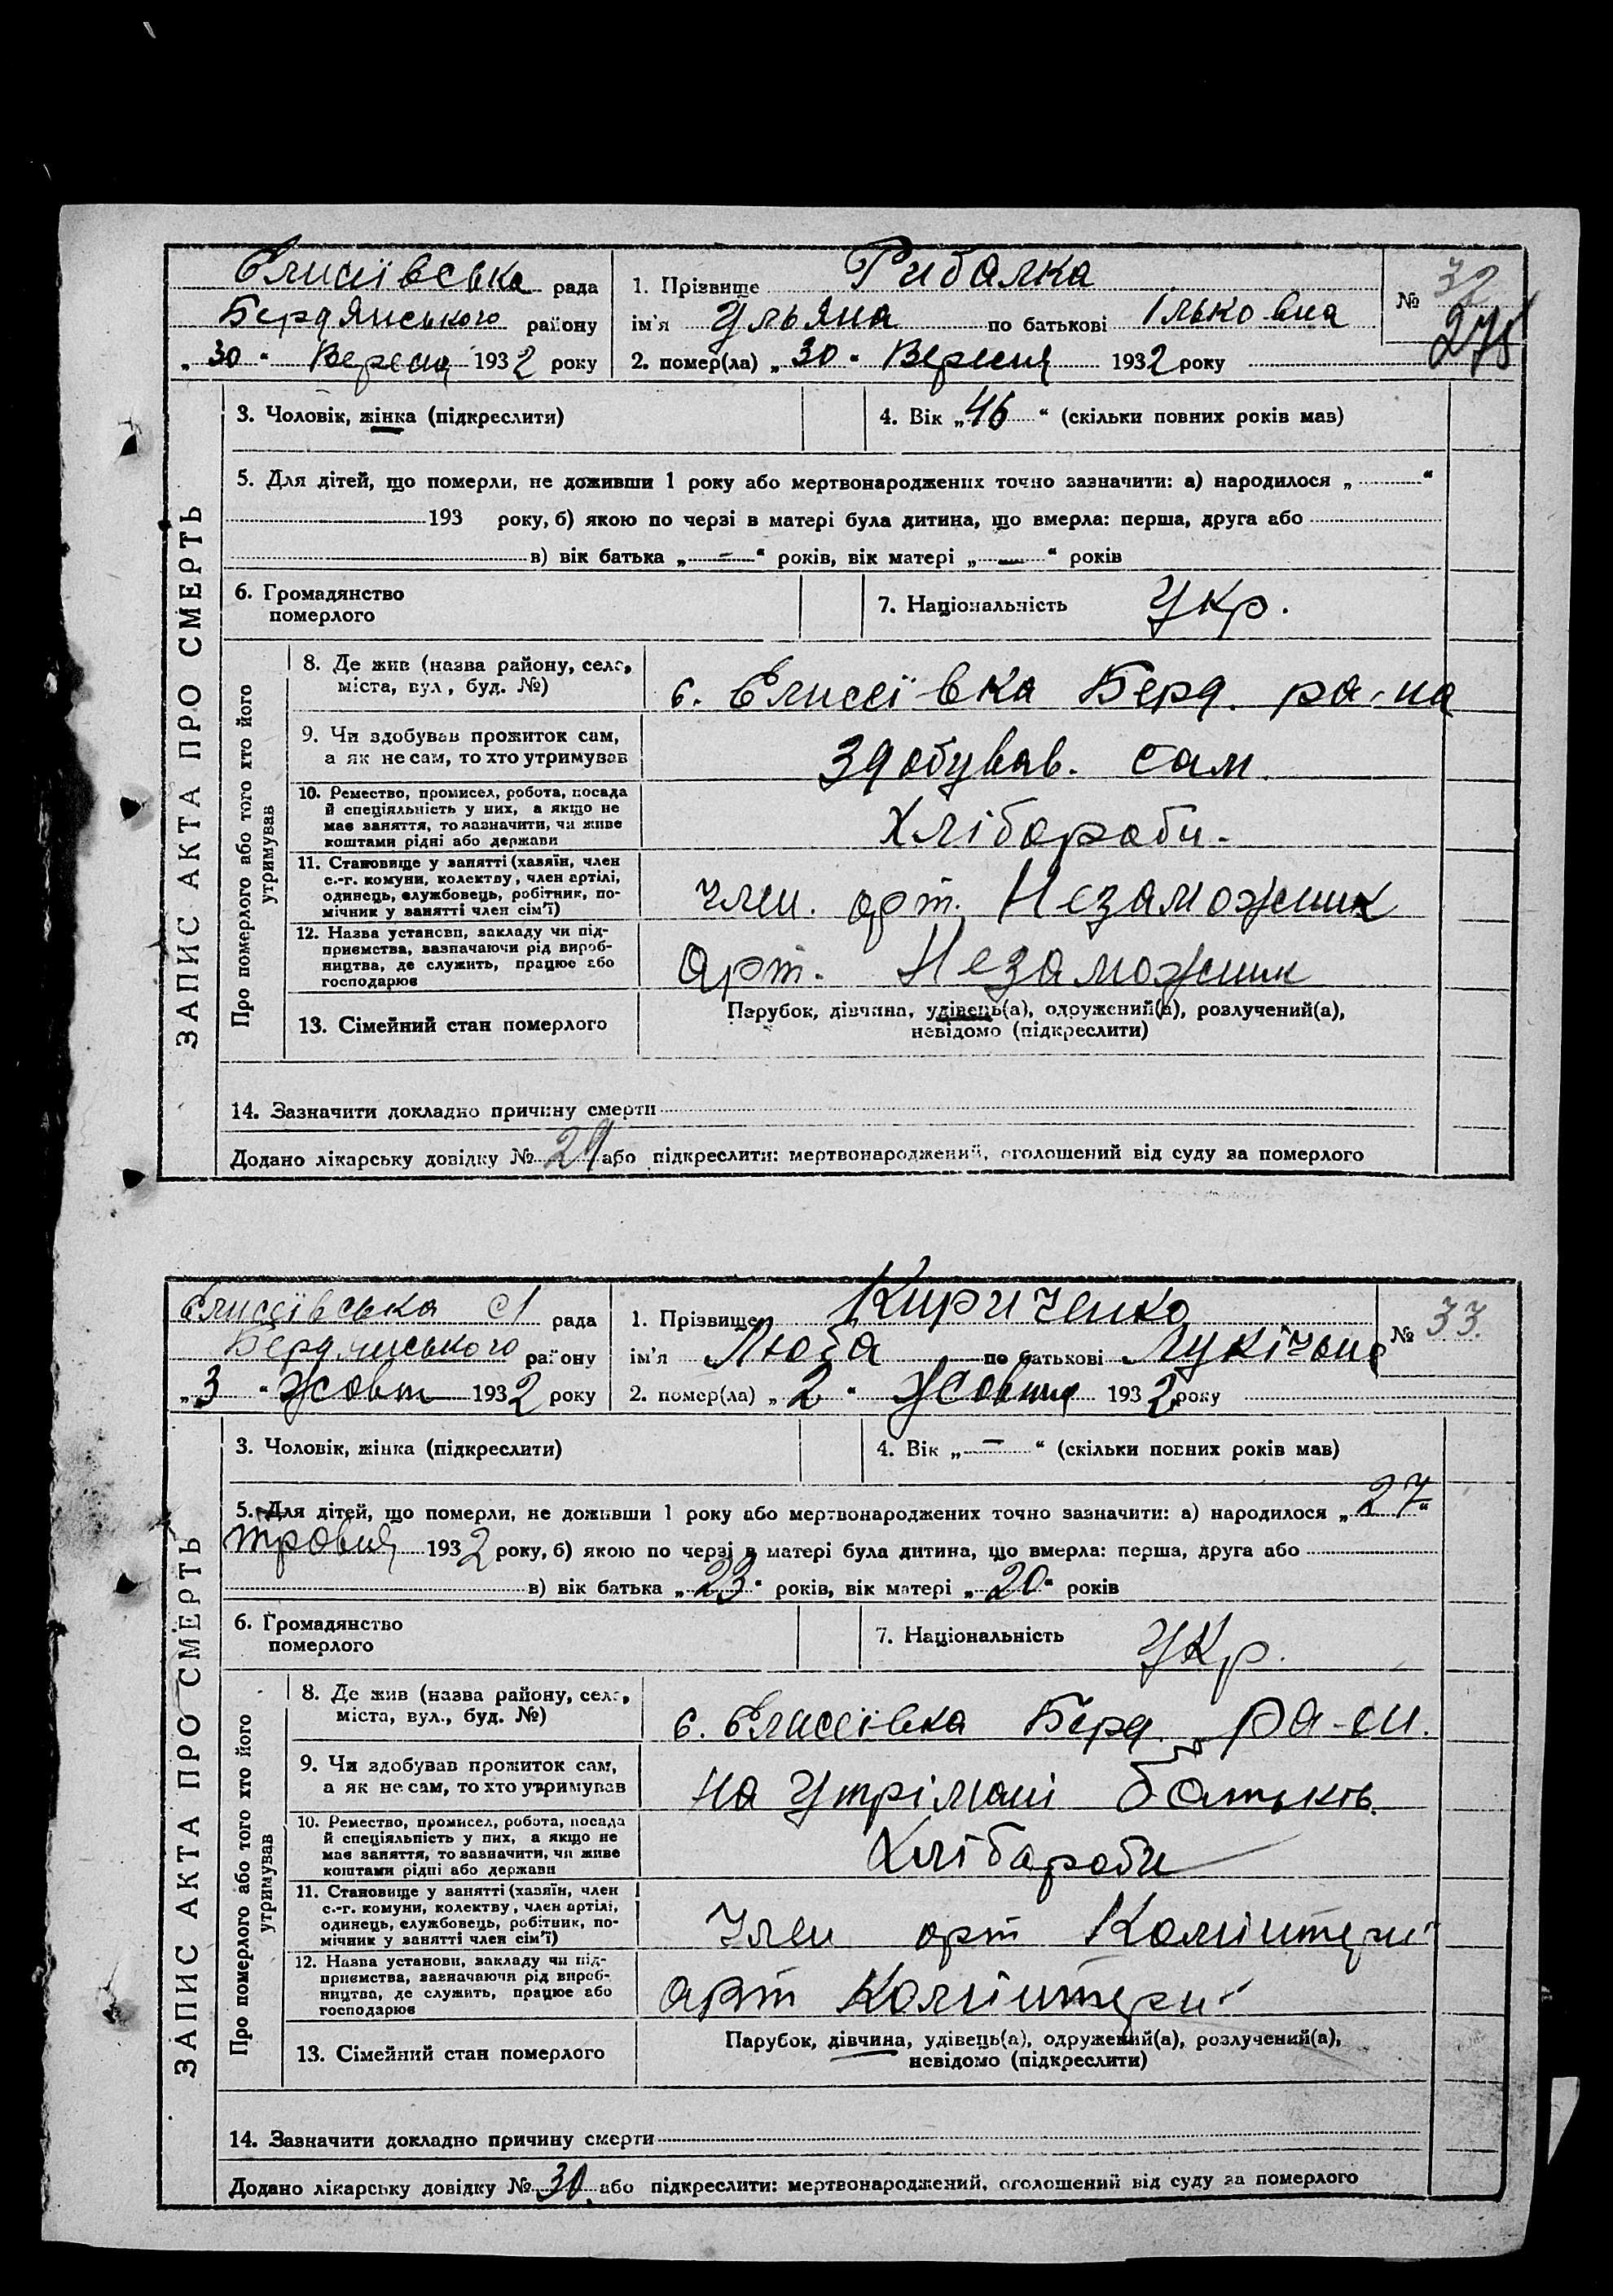 Єлисеївська рада
1. Прізвище Рибалка
№ 32
Бердянського району
ім'я Ульяна по батькові Ільковна
275
„ 30 “ Вересня 1932 року
2. помер(ла) „ 30 “ Вересня 1932 року
3. Чоловік, жінка (підкреслити)
4. Вік „ 46 “ (скільки повних років мав)
5. Для дітей, що померли, не доживши 1 року або мертвонароджених точно зазначити: а) народилося „ “
193 року, б) якою по черзі в матері була дитина, що вмерла: перша, друга або
в) вік батька „ – “ років, вік матері „ – “ років
6. Громадянство
померлого
7. Національність Укр.
ЗАПИС АКТА ПРО СМЕРТЬ
Про померлого або того хто його
утримував
8. Де жив (назва району, села,
міста, вул., буд. №)
с. Елисеївка Берд. ра-на
9. Чи здобував прожиток сам,
а як не сам, то хто утримував
Здобував. Сам.
10. Ремество, промисел, робота, посада
й спеціяльність у них, а якщо не
має заняття, то зазначити, чи живе
коштами рідні або держави
Хлібороби.
11. Становище у занятті (хазяїн, член
с.-г. комуни, колектву, член артілі,
одинець, службовець, робітник, по-
мічник у занятті член сім'ї)
член. арт. Незаможник
12. Назва установи, закладу чи під-
приємства, зазначаючи рід вироб-
ництва, де служить, працює або
господарює
Арт. Незаможник
13. Сімейний стан померлого
Парубок, дівчина, удівець(а), одружений(а), розлучений(а),
невідомо (підкреслити)
14. Зазначити докладно причину смерти
Додано лікарську довідку № 29 або підкреслити: мертвонароджений, оголошений від суду за померлого
Єлисеївська с/ рада
1. Прізвище Кириченко
№ 33.
Бердянського району
ім'я Люба по батькові
„ 3 “ Жовт 1932 року
2. помер(ла) „ 2 “ Жовтня 1932 року
3. Чоловік, жінка (підкреслити)
4. Вік „ – “ (скільки повних років мав)
5. Для дітей, що померли, не доживши 1 року або мертвонароджених точно зазначити: а) народилося „ 27 “
травня 1932 року, б) якою по черзі в матері була дитина, що вмерла: перша, друга або
в) вік батька „ 23 “ років, вік матері „ 20 “ років
6. Громадянство
померлого
7. Національність Укр.
ЗАПИС АКТА ПРО СМЕРТЬ
Про померлого або того хто його
утримував
8. Де жив (назва району, села,
міста, вул., буд. №)
с. Елисеївка Берд. ра-он.
9. Чи здобував прожиток сам,
а як не сам, то хто утримував
На Утрімані батьків.
10. Ремество, промисел, робота, посада
й спеціяльність у них, а якщо не
має заняття, то зазначити, чи живе
коштами рідні або держави
Хлібароби
11. Становище у занятті (хазяїн, член
с.-г. комуни, колектву, член артілі,
одинець, службовець, робітник, по-
мічник у занятті член сім'ї)
Член арт Комінтерн
12. Назва установи, закладу чи під-
приємства, зазначаючи рід вироб-
ництва, де служить, працює або
господарює
арт Комінтерн
13. Сімейний стан померлого
Парубок, дівчина, удівець(а), одружений(а), розлучений(а),
невідомо (підкреслити)
14. Зазначити докладно причину смерти
Додано лікарську довідку № 30 або підкреслити: мертвонароджений, оголошений від суду за померлого